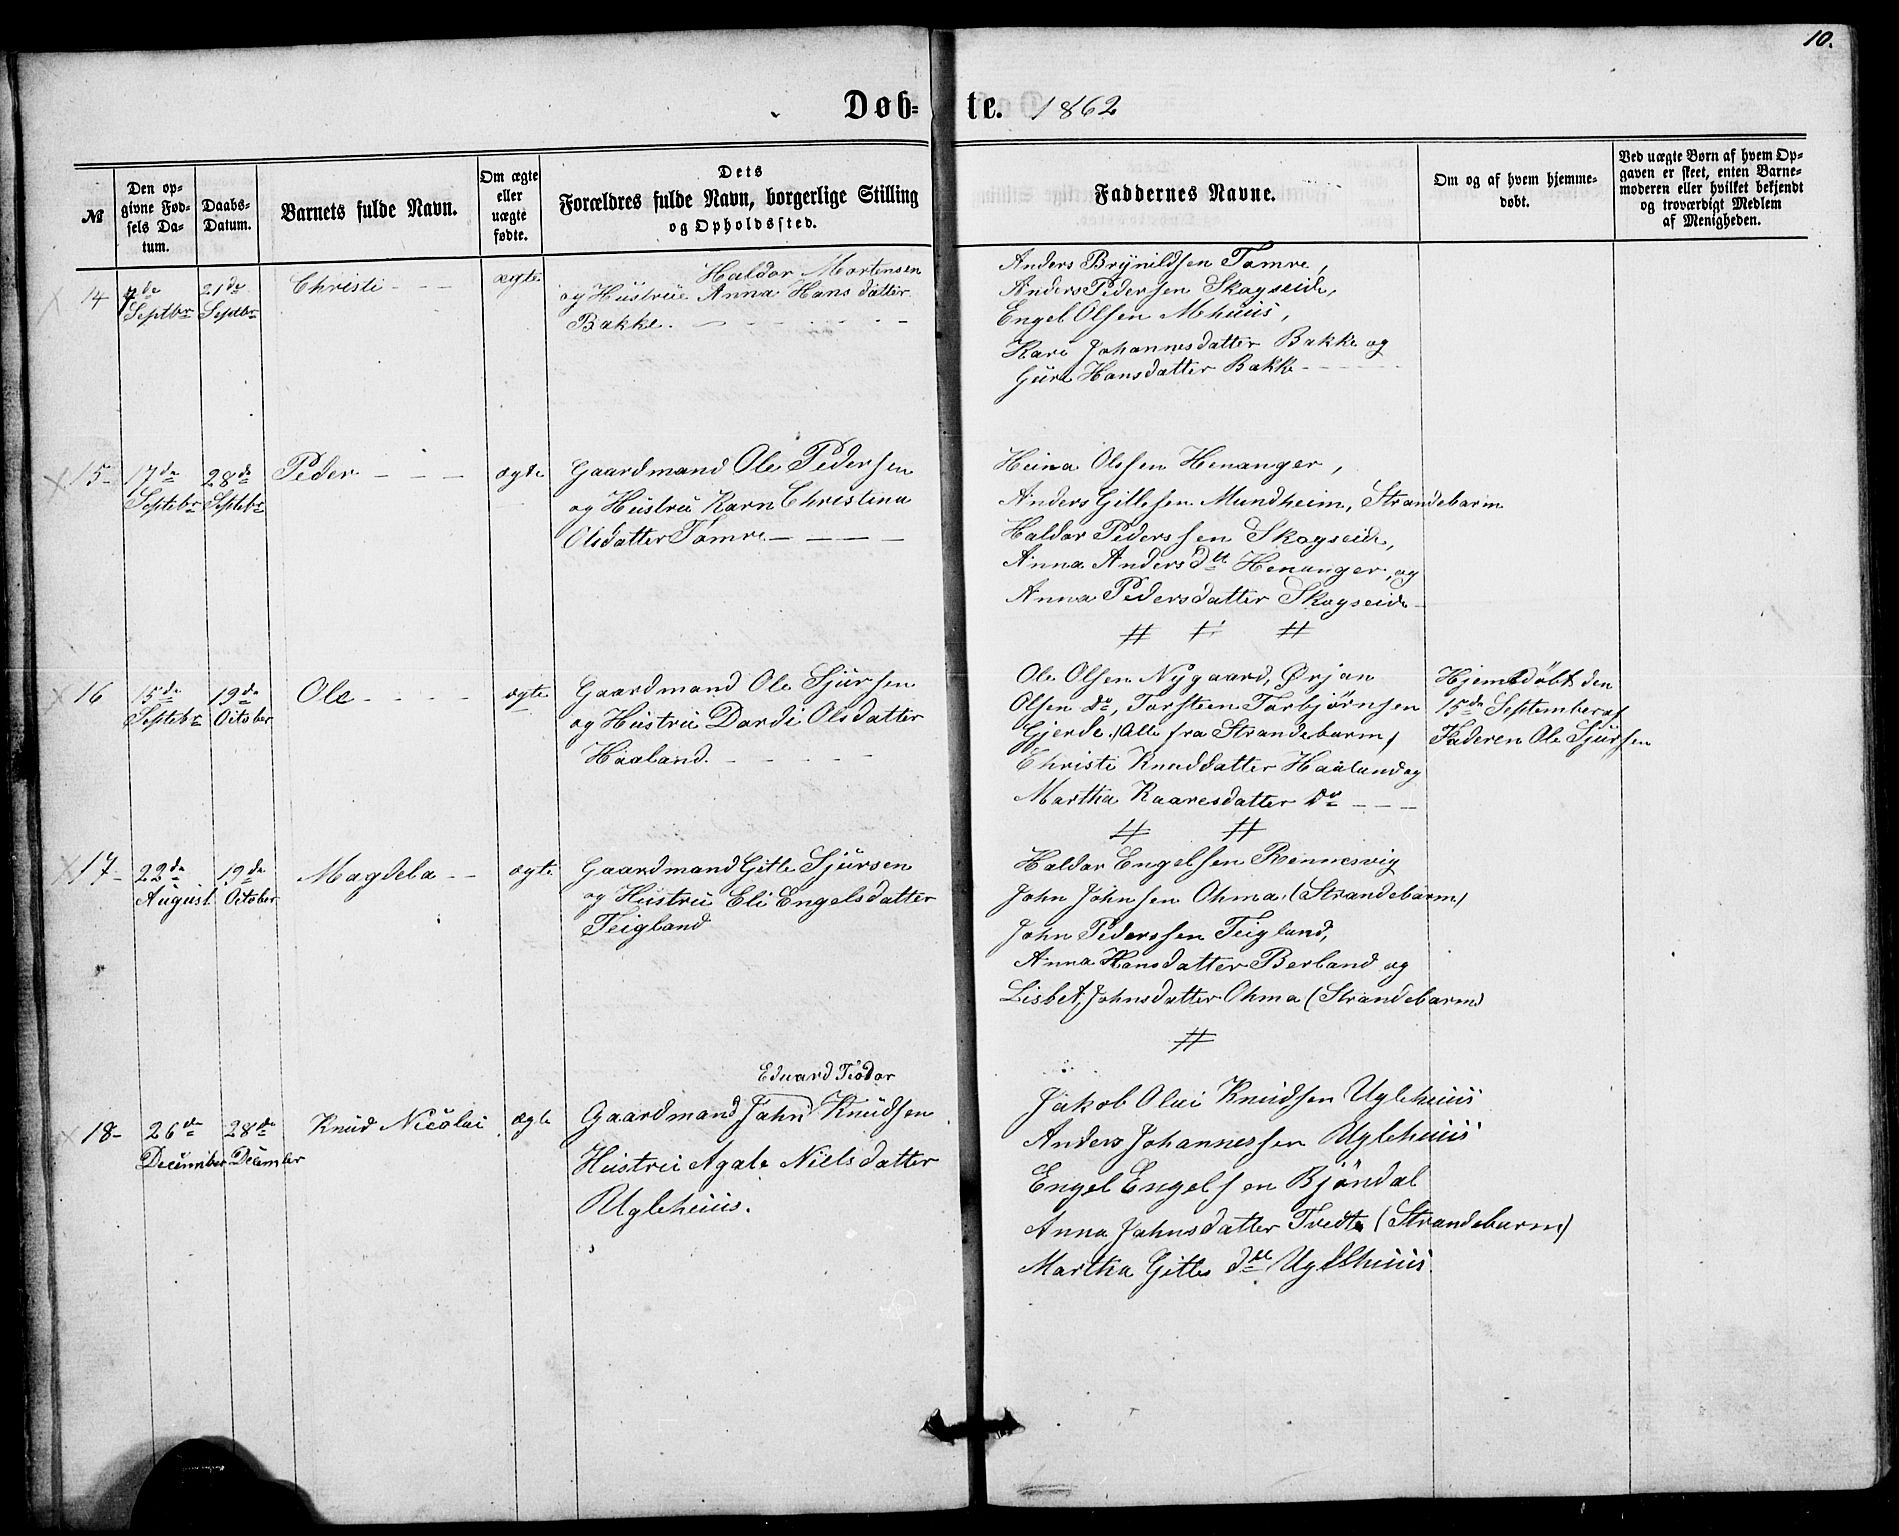 10.
Døb- te. 1862
№
Den op-
givne Fød-
sels Da-
tum.
Daabs-
Datum.
Barnets fulde Navn.
Om ægte
eller
uægte
fødte.
Dets
Forældres fulde Navn, borgerlige Stilling
og Opholdssted.
Faddernes Navne.
Om og af hvem hjemme-
døbt.
Ved uægte Børn af hvem Op-
gaven er skeet, enten Barne-
moderen eller hvilket bekjendt
og troværdigt Medlem
af Menigheden.
14
7de
Septbr
21de
Septbr
Christi - - -
ægte
Haldor Mortensen
og Hustrue Anna Hansdatter
Bakke. - - - - - -
Anders Brynildsen Tomre,
Anders Pedersen Skogseide,
Engel Olsen Mhuus,
Kari Johannesdatter Bakke og
Guri Hansdatter Bakke - - - - -
15-
17de
Septebr
28de
Septebr
Peder - - - -
ægte
Gaardmand Ole Pedersen
og Hustrú Karn Christina
Olsdatter Tomre - - - -
Heina Olssen Henanger,
Anders Gittlesen Mundheim, Strandebarm
Haldor Pederssen Skogseide,
Anna Andersdtt Henanger, og
Anna Pedersdatter Skogseide
# # #
16
15de
Septebr
19de
October
Ole - - - -
ægte
Gaardmand Ole Sjursen
og Hustrú Dordi Olsdatter
Haaland. - - - - -
Ole Olsen Nygaard, Ørjan
Olsen do, Torsteen Torbjørnsen
Gjerde, (Alle fra Strandebarm)
Christi Knuddatter Haaland og
Martha Kaaresdatter Do - - -
# #
Hjemdöbt den
15de September af
Faderen Ole Sjursen
17-
22de
August
19de
October
Magdela - -
ægte
Gaardmand Gitle Sjursen
og Hustrú Eli Engelsdatter
Teigland
Haldor Engelsen Rennesvig
John Johnsen Ohma (Strandebarm)
John Pederssen Teigland,
Anna Hansdatter Berland og
Lisbet Johnsdatter Ohma (Strandebarm)
#
18-
26de
December
28de
December
Knud Nicolai
ægte
Eduard Tiodor
Gaardmand John Knudsen
Hustrú Agate Nielsdatter
Uglehuus.
Jakob Olai Knudsen Uglehuus
Anders Johannessen Uglehuus
Engel Engelsen Bjöndal
Anna Johnsdatter Tvedte (Strandebarm)
Martha Gittes dtt Uglehuus